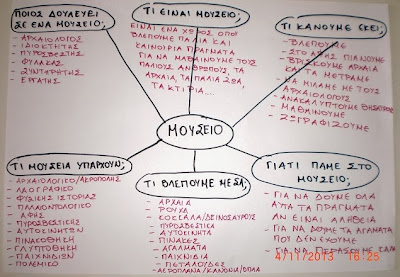 ΠΟΙΟΣ ΔΟΥΛΕΥΕΙ
ΣΕ ΕΝΑ ΜΟΥΣΕΙΟ;
- ΑΡΧΑΙΟΛΟΓΟΣ
- ΙΔΙΟΚΤΗΤΗΣ
- ΠΥΡΟΣΒΕΣΤΗΣ
- ΦΥΛΑΚΑΣ
- ΣΥΝΤΗΡΗΤΗΣ
- ΕΡΓΑΤΗΣ
ΤΙ ΕΙΝΑΙ ΜΟΥΣΕΙΟ;
ΕΙΝΑΙ ΕΝΑΣ ΧΩΡΟΣ ΟΠΟΥ
ΒΛΕΠΟΥΜΕ ΠΑΛΙΑ ΚΑΙ
ΚΑΙΝΟΥΡΙΑ ΠΡΑΓΜΑΤΑ
ΓΙΑ ΝΑ ΜΑΘΑΙΝΟΥΜΕ ΤΟΥΣ
ΠΑΛΙΟΥΣ ΑΝΘΡΩΠΟΥΣ, ΤΑ
ΑΡΧΑΙΑ, ΤΑ ΠΑΛΙΑ ΖΩΑ,
ΤΑ ΚΤΙΡΙΑ...
ΤΙ ΚΑΝΟΥΜΕ ΕΚΕΙ;
- ΒΛΕΠΟΥΜΕ
- ΣΤΟ ΑΦΗΣ ΠΙΑΝΟΥΜΕ
- ΒΡΙΣΚΟΥΜΕ ΑΡΧΑΙΑ
ΚΑΙ ΤΑ ΜΕΤΡΑΜΕ
- ΝΑ ΜΙΛΑΜΕ ΜΕ ΤΟΥΣ
ΑΡΧΑΙΟΛΟΓΟΥΣ
- ΑΝΑΚΑΛΥΠΤΟΥΜΕ ΘΗΣΑΥΡΟΥΣ
- ΜΑΘΑΙΝΟΥΜΕ
- ΖΩΓΡΑΦΙΖΟΥΜΕ
ΜΟΥΣΕΙΟ
ΤΙ ΜΟΥΣΕΙΑ ΥΠΑΡΧΟΥΝ;
- ΑΡΧΑΙΟΛΟΓΙΚΟ/ΑΚΡΟΠΟΛΗΣ
- ΛΑΟΓΡΑΦΙΚΟ
- ΦΥΣΙΚΗΣ ΙΣΤΟΡΙΑΣ
- ΠΑΛΑΙΟΝΤΟΛΟΓΙΚΟ
- ΑΦΗΣ
- ΠΥΡΟΣΒΕΣΤΙΚΗΣ
- ΑΥΤΟΚΙΝΗΤΩΝ
- ΠΙΝΑΚΟΘΗΚΗ
- ΓΛΥΠΤΟΘΗΚΗ
- ΠΑΙΧΝΙΔΙΩΝ
- ΠΟΛΕΜΙΚΟ
ΤΙ ΒΛΕΠΟΥΜΕ ΜΕΣΑ;
- ΑΡΧΑΙΑ
- ΡΟΥΧΑ
- ΚΟΚΚΑΛΑ/ΔΕΙΝΟΣΑΥΡΟΥΣ
- ΠΥΡΟΣΒΕΣΤΙΚΑ
- ΑΥΤΟΚΙΝΗΤΑ
- ΠΙΝΑΚΕΣ
- ΑΓΑΛΜΑΤΑ
- ΠΑΙΧΝΙΔΙΑ
- ΠΕΤΑΛΟΥΔΕΣ
- ΑΕΡΟΠΛΑΝΑ/ΚΑΝΟΝΙΑ/ΟΠΛΑ
ΓΙΑΤΙ ΠΑΜΕ ΣΤΟ
ΜΟΥΣΕΙΟ;
- ΓΙΑ ΝΑ ΔΟΥΜΕ ΟΛΑ
ΑΥΤΑ ΤΑ ΠΡΑΓΜΑΤΑ
ΑΝ ΕΙΝΑΙ ΑΛΗΘΕΙΑ
- ΓΙΑ ΝΑ ΔΟΥΜΕ ΤΑ ΑΓΑΛΜΑΤΑ
ΠΟΥ ΔΕΝ ΕΧΟΥΜΕ
ΝΑ ΠΕΡΑΣΟΥΜΕ ΚΑΛΑ
4/11/2013 16:25